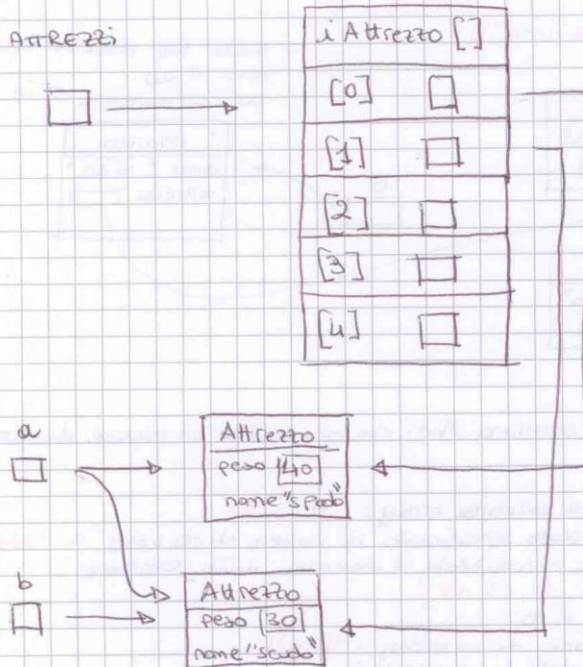 ATTREZZI
i Attrezzo []
[0]
[1]
[2]
[3]
[4]
a
Attrezzo
peso 40
name "spada"
b
Attrezzo
peso 30
name "scudo"